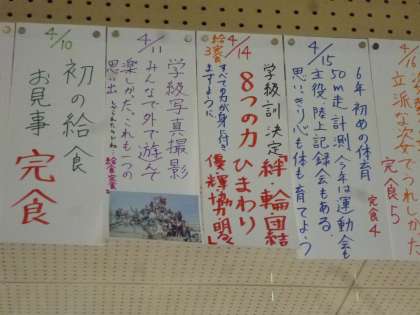 4/10
初の給食
お見事
完食
4/11
学級写真撮影
みんなで外で遊んで
楽しかった、これも一つの
思い出
4/14
学級訓 決定「絆・輪・団結
8つの力 ひまわり
優輝協明
すべての力が身に付き
ますように
給食完食3
4/15
6年 初めの体育
50m走 計測 今年は運動会も
主役 陸上記録会もある。
思いきり心も体も育てよう
4/16
立派な姿
でうれしかった
完食5
完食4